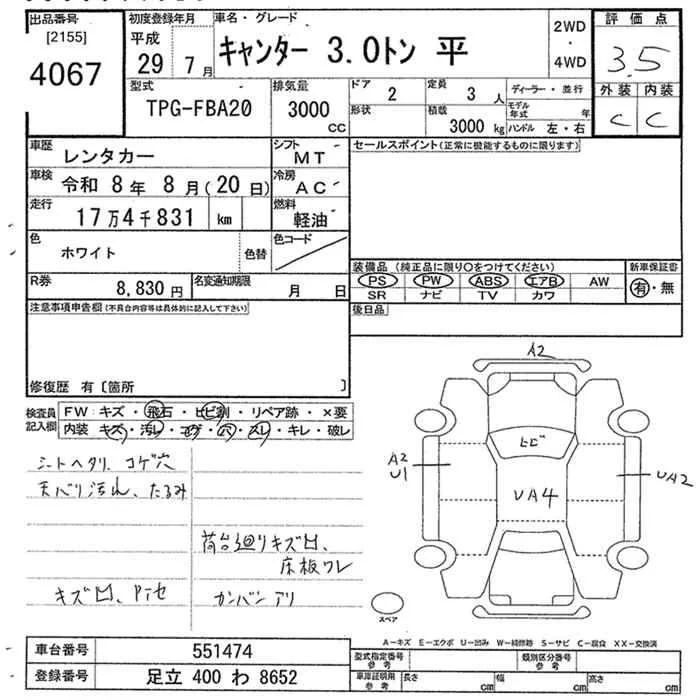 出品番号
[2155]
4067
初度登録年月
平成
29 7月
車名・グレード
キャンター 3.0トン 平
2WD
・
4WD
評価点
3.5
外装 内装
C C
型式
TPG-FBA20
排気量
3000
CC
ドア
2
定員
3人
形状
積載
3000 kg
ディーラー・並行
モデル年式 年
ハンドル 左・右
車歴
レンタカー
シフト
MT
車検 令和 8年 8月(20日)
冷房
AC
走行
17万4千831 km
燃料
軽油
色
ホワイト
色替
色コード
R券
8,830円
名変通知期限
月 日
セールスポイント(正常に機能するものに限ります)
装備品 (純正品に限り○をつけてください)
新車保証書
PS PW ABS エアB AW
SR ナビ TV カワ
有・無
後日品
注意事項申告欄(不具合内容等は具体的に記入して下さい)
修復歴 有〔箇所 〕
検査員
記入欄
FW:キズ・飛石・ヒビ割・リペア跡・×要
内装 キズ・汚レ・コゲ・穴・スレ・キレ・破レ
シートヘタリ、コゲ穴
天バリ汚れ、たるみ
荷台廻りキズ凹、
床板ワレ
キズ凹、
カンバンアリ
A2
ヒビ
A2
U1
UA4
UA2
スペア
A-キズ E-エクボ U-凹み W-補修跡 S-サビ C-腐食 XX-交換済
車台番号
551474
登録番号
足立 400 わ 8652
型式指定番号
参考
類別区分番号
参考
車庫証明用
参考
長さ cm 幅 cm 高さ cm